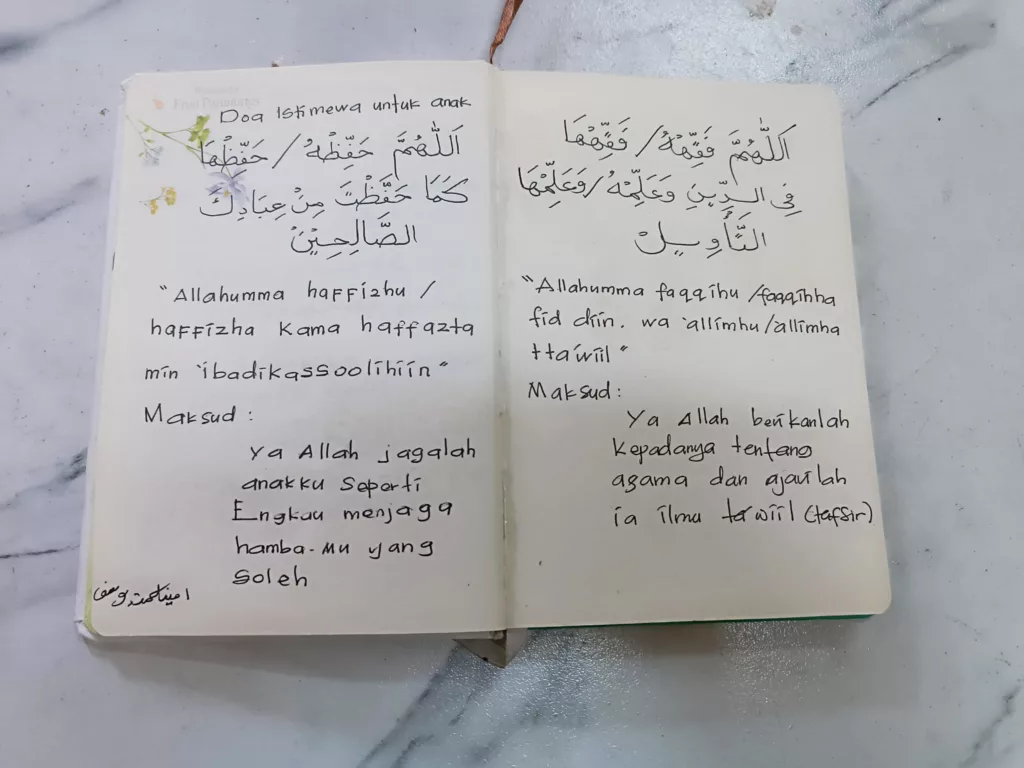 Doa Istimewa untuk anak
اَللّٰهُمَّ حَفِّظْهُ / حَفِّظْهَا
كَمَا حَفَّظْتَ مِنْ عِبَادِكَ
الصَّالِحِيْنَ
"Allahumma haffizhu /
haffizha kama haffazta
min 'ibadikassoolihiin"
Maksud :
Ya Allah jagalah
anakku seperti
Engkau menjaga
hamba-Mu yang
soleh
اَللّٰهُمَّ فَقِّهْهُ / فَقِّهْهَا
فِي الدِّيْنِ وَعَلِّمْهُ / وَعَلِّمْهَا
التَّأْوِيْلْ
"Allahumma faqqihu /faqqihha
fid diin. wa 'allimhu/allimha
tta'wiil"
Maksud :
Ya Allah berikanlah
kepadanya tentang
agama dan ajarilah
ia ilmu ta'wiil (tafsir)